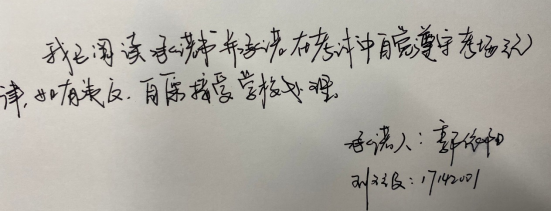 我已阅读承诺书并承诺在考试中自觉遵守考场纪
律,如有违反.自愿接受学校处理。
承诺人:郭
班级:17142001